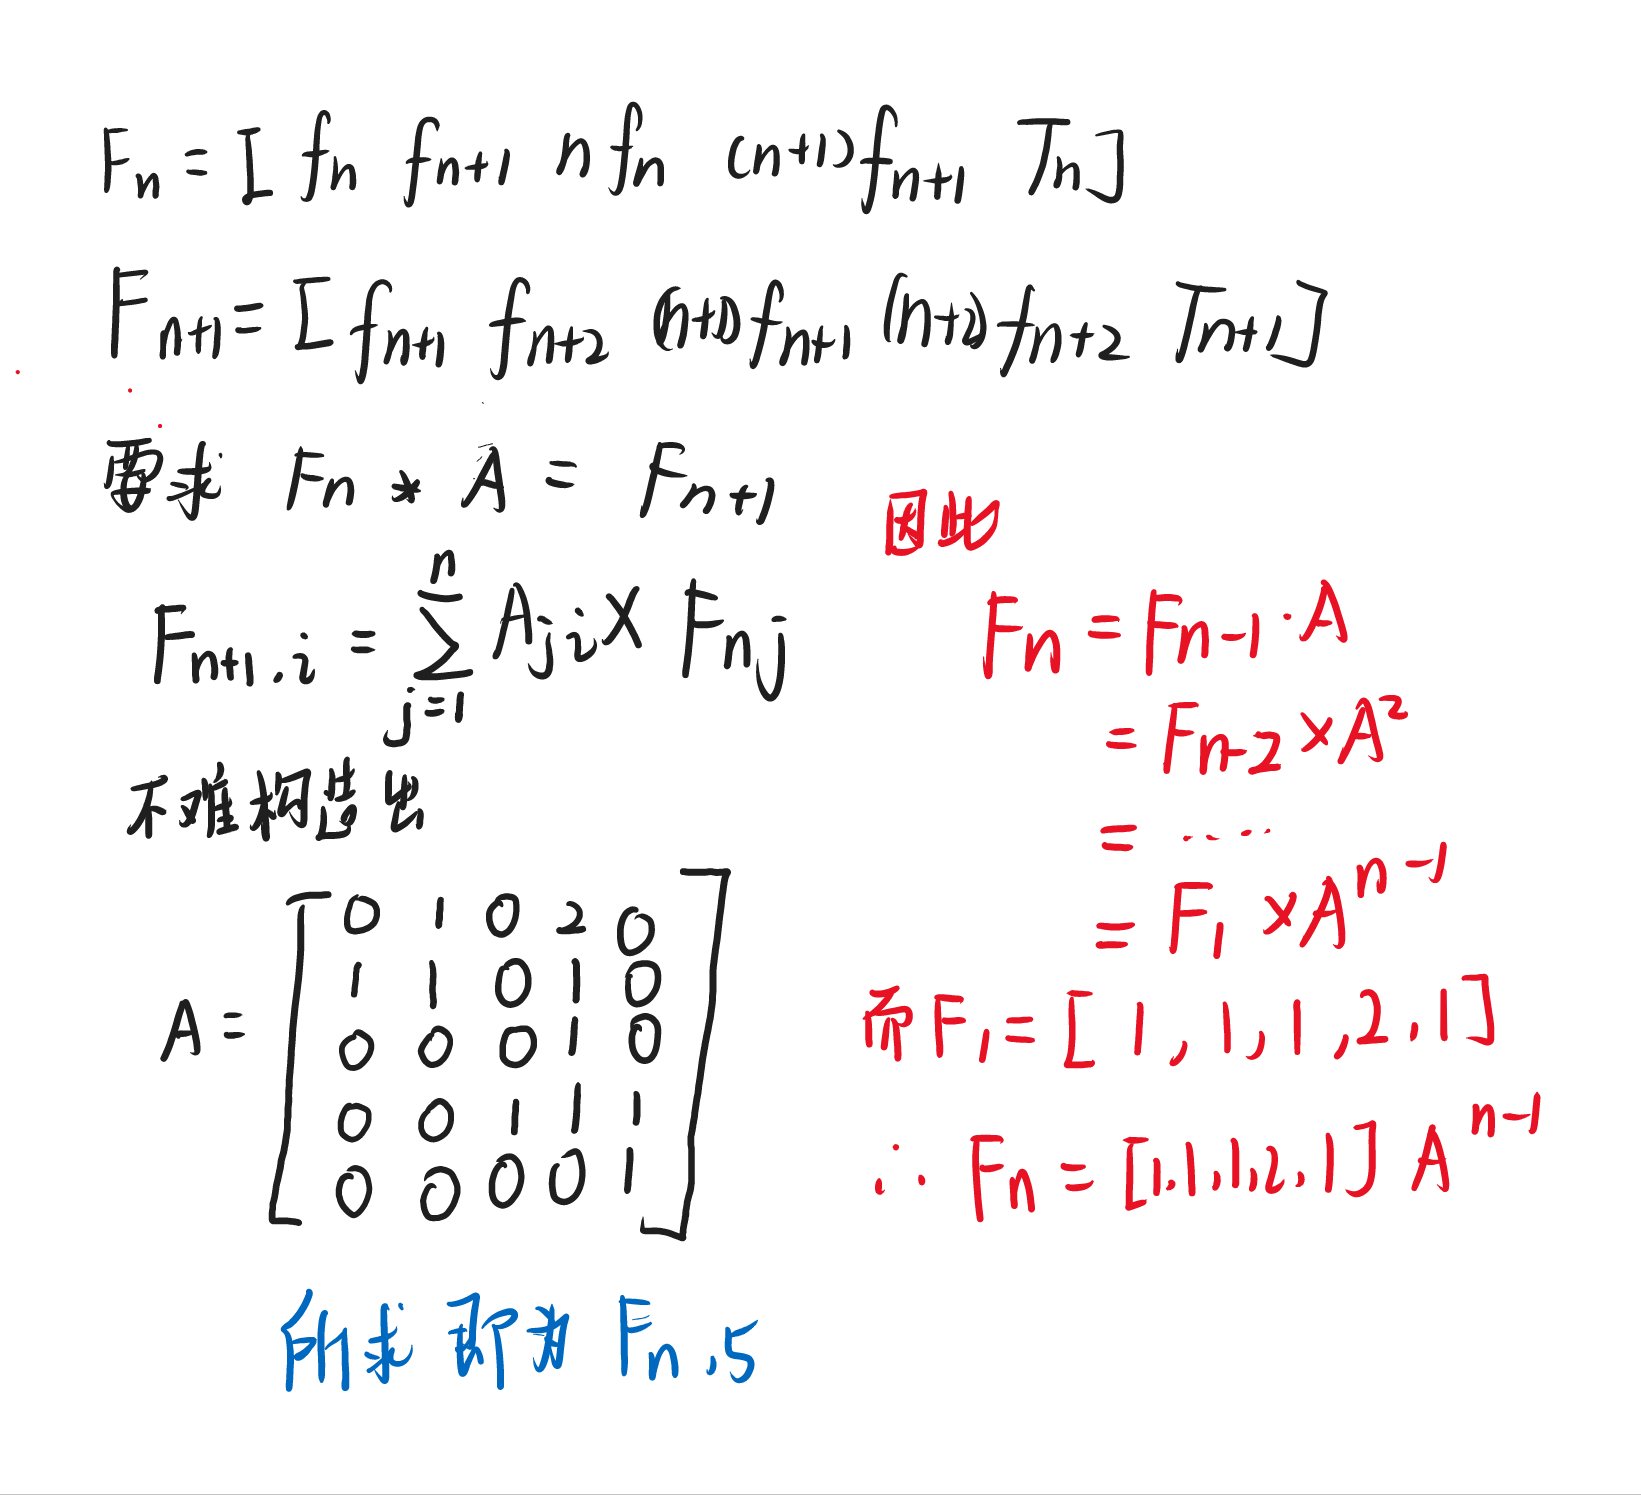 Fn = [ fn fn+1 n fn (n+1)fn+1 Tn ]
Fn+1 = [ fn+1 fn+2 (n+1)fn+1 (n+2)fn+2 Tn+1 ]
要求 Fn * A = Fn+1
n
Fn+1,i = ∑ Aji × Fnj
j=1
不难构造出
A =
0 1 0 2 0
1 1 0 1 0
0 0 0 1 0
0 0 1 1 1
0 0 0 0 1
所求即为 Fn,5
因此
Fn = Fn-1 · A
= Fn-2 × A²
= ......
= F1 × A^n-1
而 F1 = [ 1, 1, 1, 2, 1 ]
∴ Fn = [1,1,1,2,1] A^n-1